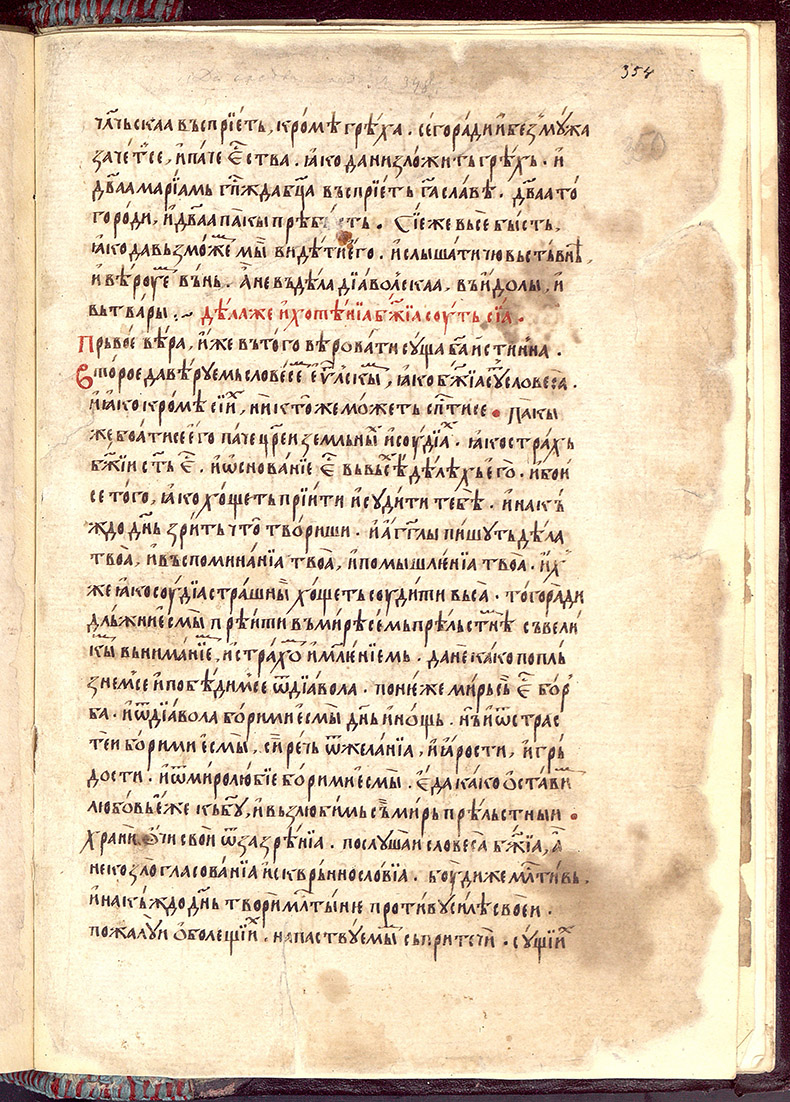 354
350
чл҃чьскаа въспрїеть, кро́мѣ грѣ́ха . сего́ ради и҆ без мꙋ́жа
зачет се, и҆ па́че є҆ства . ꙗ҆ко да низло́жить грѣхь . и҆
дв҃аа марїамь гп҃жда бц҃а въспрїеть г҃а славѣ . дв҃аа то
го ради, и҆ дв҃аа пакы прѣбысть . Сїе же вьсе бы́сть,
ꙗ҆ко да вьзмо́жемⷨы ви́дѣти є҆го . и҆ слы́шати
и҆ вѣ́роуеⷨ вънь . а҆ не въ дѣла дїаво́лскаа, въ и҆долы, и҆
вьтва́ры :~ дѣ́ла же и҆ хотѣ́нїа бж҃їа соуть сїа .
Прьво́е вѣ́ра, и҆же въ того вѣ́ровати сꙋща ба҃ и҆стинна .
Второе да вѣ́рꙋемь словесе́мⷨ еѵⷢ҇лскыⷨ, ꙗ҆ко бж҃їа сꙋⷮ словеса .
и҆ ꙗ҆ко кро́мѣ сїиⷯ, никто́же мо́жеть сп҃ти се . Пакы
же боати се є҆го паче цр҃еи земльныⷯ и҆ соудїаⷯ . ꙗ҆ко стра́хь
бж҃їи ст҃ь є҆ⷭ . и҆ ѡ҆снова́нїе є҆ⷭ вь вьсѣⷯ дѣ́лѣхь є҆го . и҆ бои
се того, ꙗ҆ко хо́щеть прїити и҆ сꙋди́ти тебѣ . и҆ на къ
ждо дн҃ь зри́ть что̀ тво́риши . и҆ а҆гг҃лы пи́шꙋть дѣла
твоа̀, и҆ въспомина́нїа твоа̀, и҆ помышле́нїа твоа . и҆ⷯ
же ꙗ҆ко соудїа стра́шныи хо́щеть соудити вьса̀ . того ради
длъжни є҆смы прѣити въ мирѣ семь прѣльстнѣⷨ съ вели
кыⷨ внима́нїеⷨ, и҆ стра́хоⷨ и҆ мл҃енїемь . да не ка́ко попль
знемсе и҆ побѣди́мсе ѿ дїа́вола . поне́же мирь сь є҆ⷭ бо́р
ба . и҆ ѿ дїавола бо́рими є҆смы дн҃ь и҆ но́щь . нъ и҆ ѿ страс
теи бо́рими є҆смы, си́рѣчь ѿ жела́нїа, и҆ ꙗ҆рости, и҆ гръ
дости . и҆ ѿ миролюбїе бо́рими є҆смы . є҆да ка́ко ѡ҆ста́виⷨ
любо́вь є҆же къ бг҃ꙋ, и҆ вьзлю́бимь съ мирь прѣльстныи .
храни ѻ҆чи свои ѿ зазрѣ́нїа . послꙋшаи словеса бж҃їа, а҆
не козлогласова́нїа и҆ скврьннослоⷡїа . боуди же мл҃тивь,
и҆ на къждо дн҃ь твори мл҃тыню противꙋ силѣ своеи .
пожалꙋи ѡболещїиⷯ . напаствꙋемыⷨ съпритечи . сꙋщїиⷯ